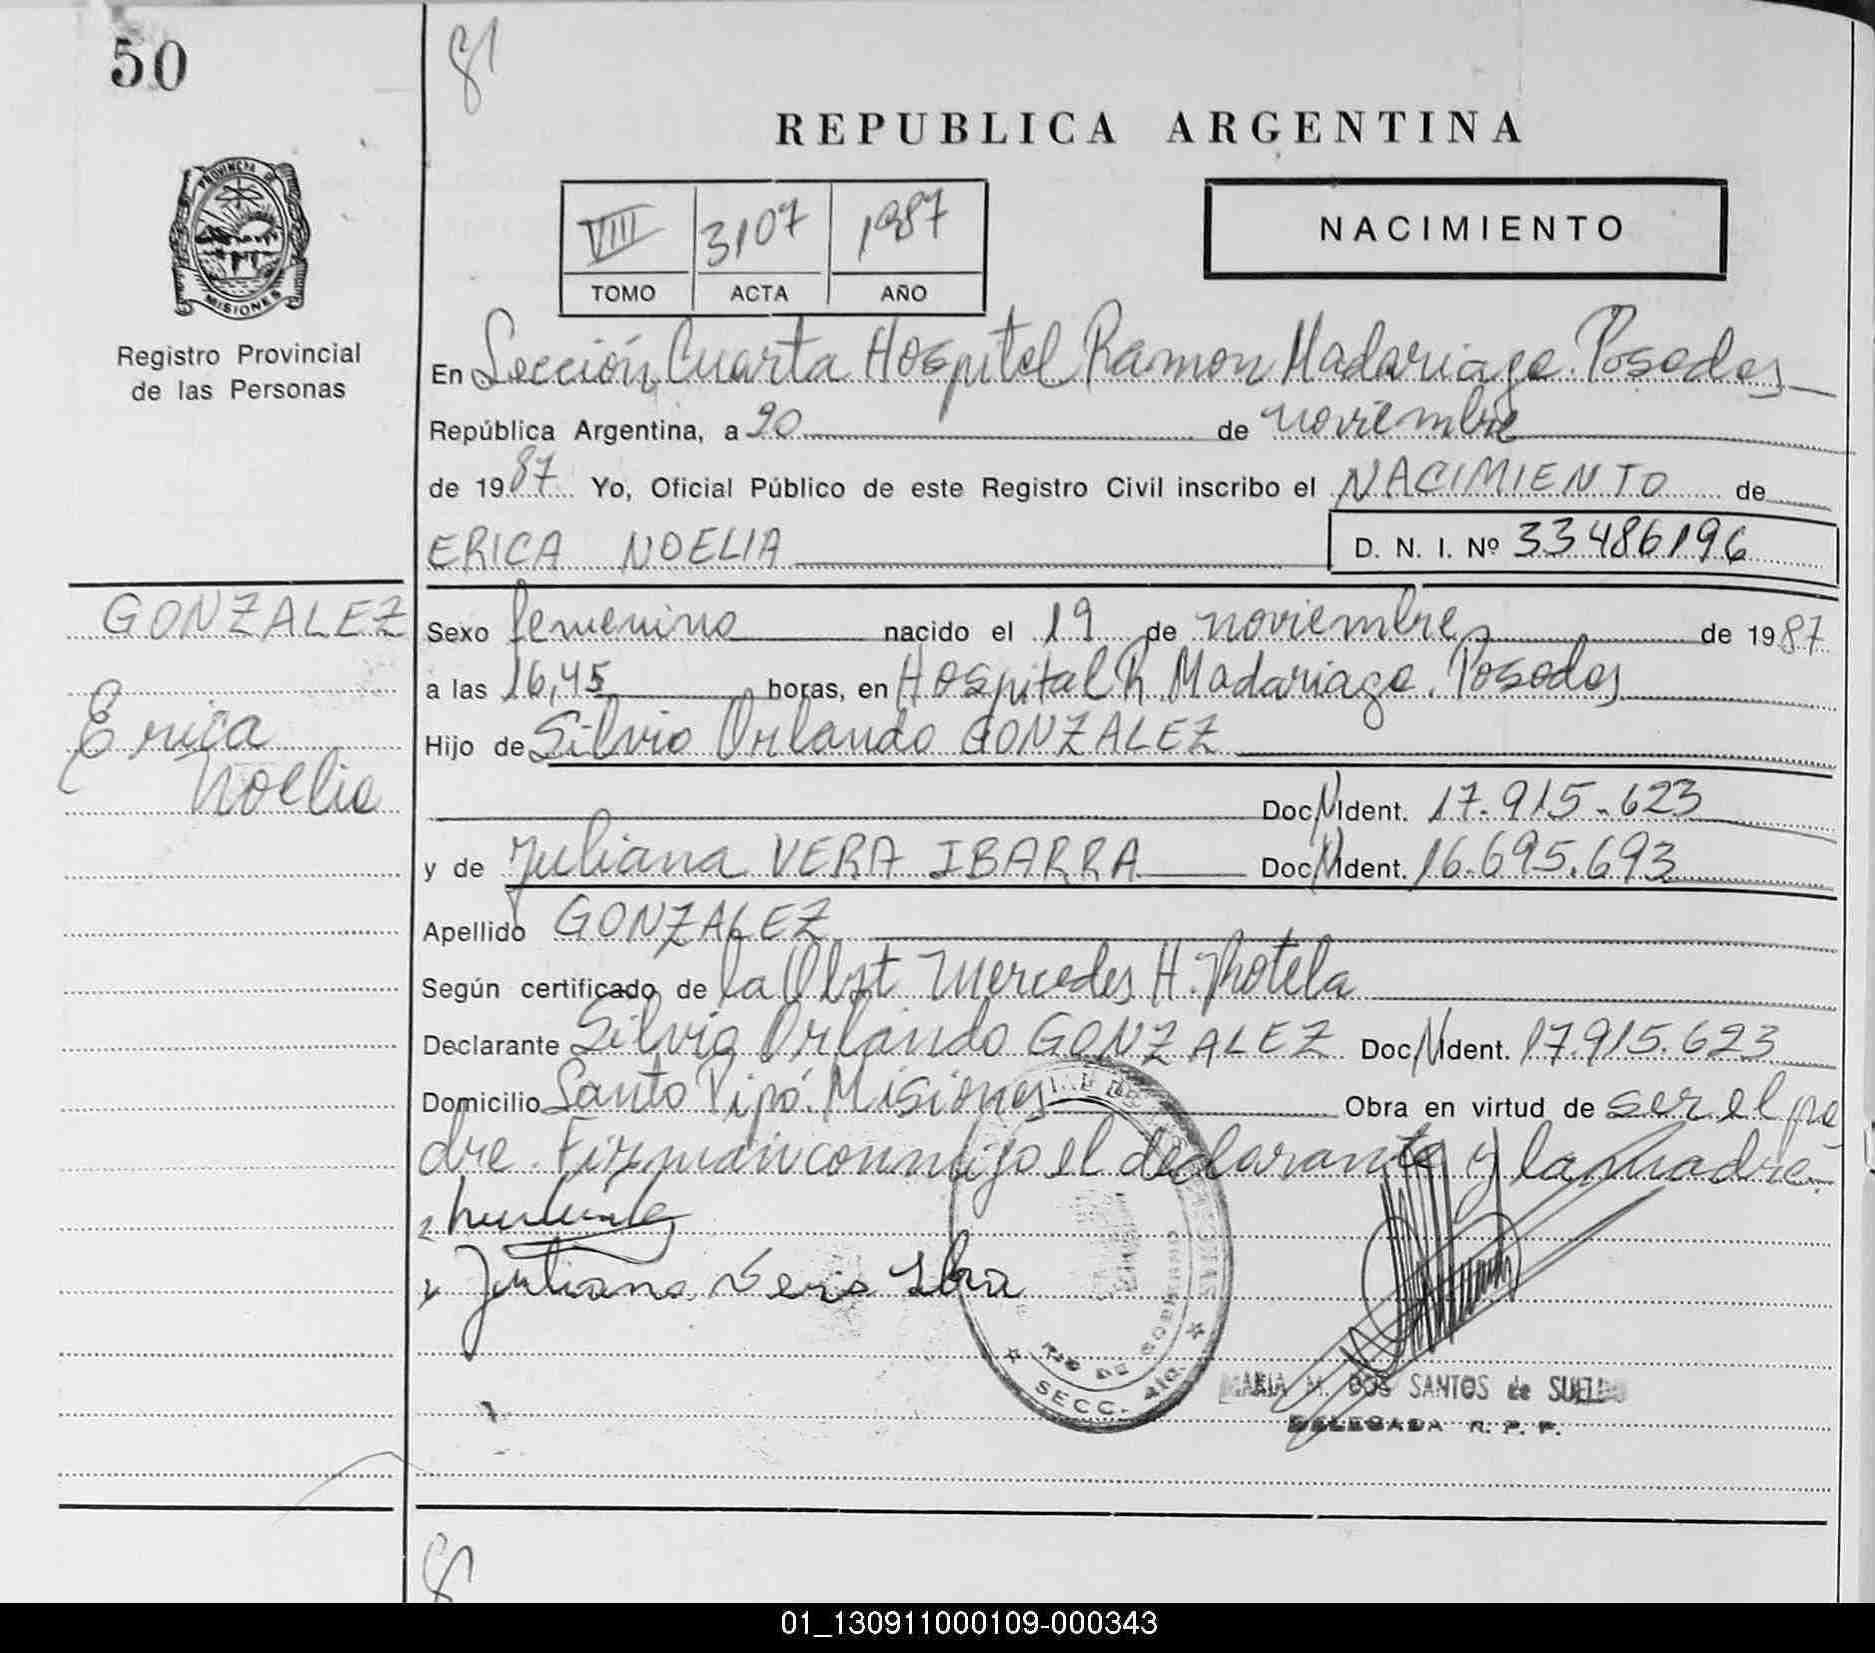 50
REPUBLICA ARGENTINA
PROVINCIA DE
MISIONES
Registro Provincial
de las Personas
VIII 3107 1987
TOMO ACTA AÑO
NACIMIENTO
En Sección Cuarta Hospital Ramon Madariaga. Posadas
República Argentina, a 20 de noviembre
de 1987 Yo, Oficial Público de este Registro Civil inscribo el NACIMIENTO de
ERICA NOELIA D. N. I. Nº 33486196
GONZALEZ
Erica
Noelia
Sexo femenino nacido el 19 de noviembre de 1987
a las 16,45 horas, en Hospital R. Madariaga. Posadas
Hijo de Silvio Orlando GONZALEZ
Doc N Ident. 17.915.623
y de Juliana VERA IBARRA Doc N Ident. 16.695.693
Apellido GONZALEZ
Según certificado de la Obst Mercedes H. Rotela
Declarante Silvio Orlando GONZALEZ Doc N Ident. 17.915.623
Domicilio Santo Pipó. Misiones Obra en virtud de ser el pa
dre. Firman conmigo el declarante y la madre.
Juliana Vera
SECC. 4ta.
MARIA M. DOS SANTOS de SUELDO
DELEGADA R. P. P.
01_130911000109-000343